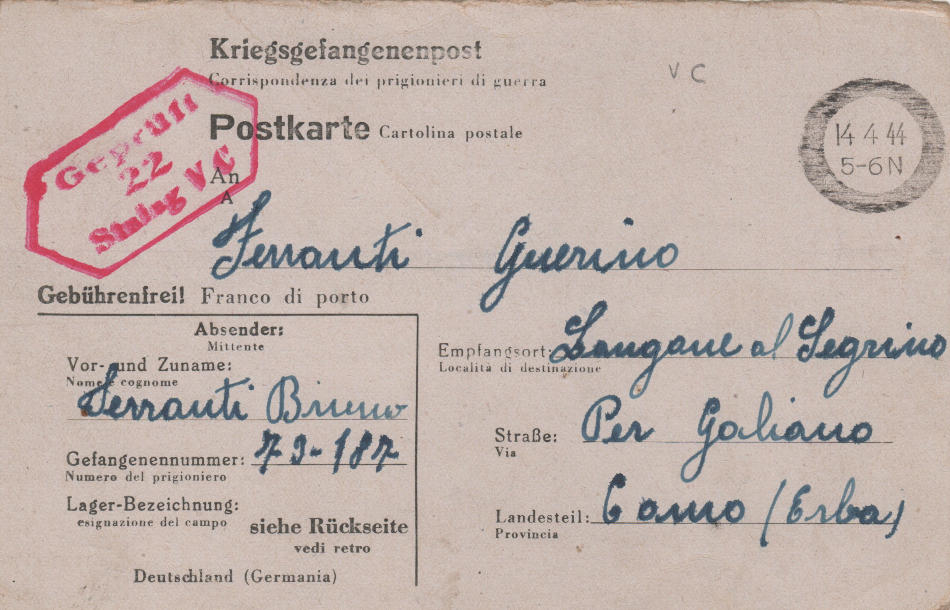 Kriegsgefangenenpost
Corrispondenza dei prigionieri di guerra
V C
Geprüft
22
Stalag V C
Postkarte Cartolina postale
14 4 44
5-6 N
An
A
Ferranti Guerino
Gebührenfrei! Franco di porto
Absender:
Mittente
Vor- und Zuname:
Nome e cognome
Ferranti Bruno
Gefangenennummer: 73-187
Numero del prigioniero
Lager-Bezeichnung:
esignazione del campo
siehe Rückseite
vedi retro
Deutschland (Germania)
Empfangsort: Longone al Segrino
Località di destinazione
Straße: Per Galiano
Via
Landesteil: Como (Erba)
Provincia